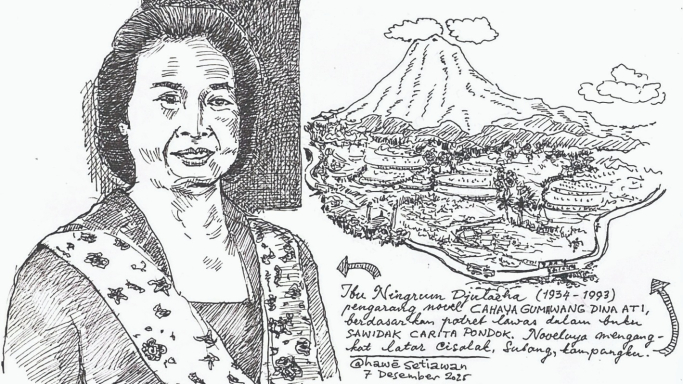 Ibu Ningrum Djulaeha (1934-1993)
pengarang novel CAHAYA GUMAWANG DINA ATI,
berdasarkan potret lawas dalam buku
SAWIDAK CARITA PONDOK. Novelnya mengang-
kat latar Cisalak, Subang, kampungku.
@hawe setiawan
7 Desember 2025